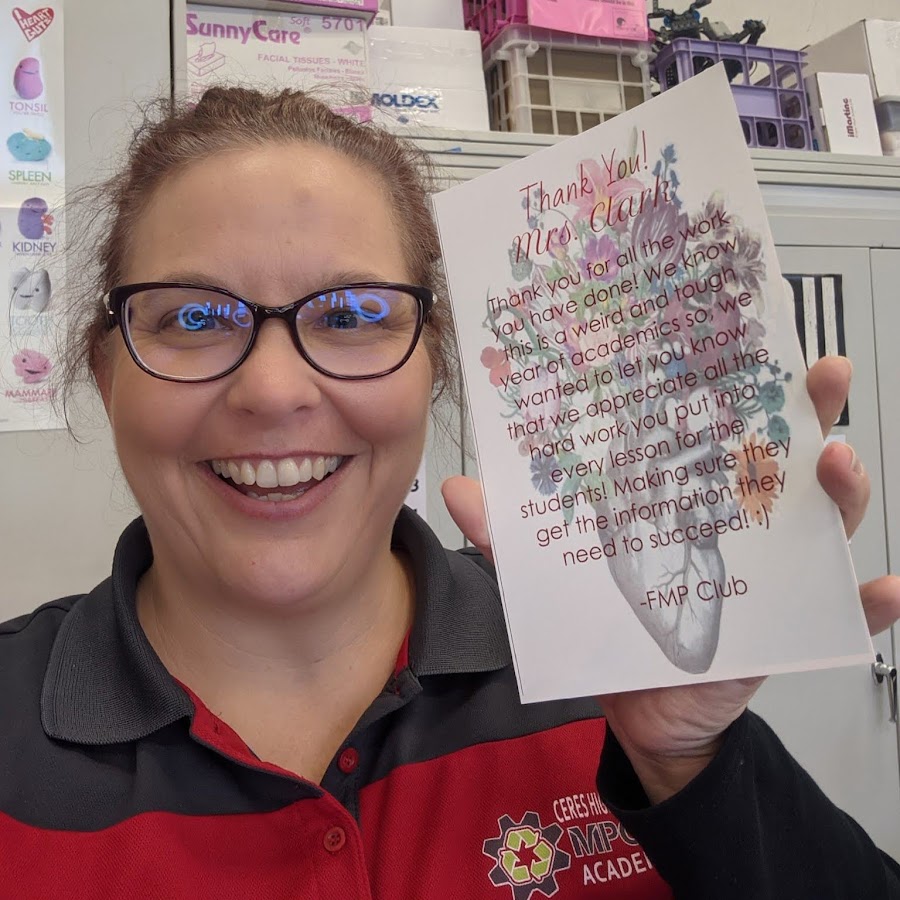 HEART
GUTS
TONSIL
SPLEEN
KIDNEY
MAMMARY
SunnyCare
Soft
5701
FACIAL TISSUES - WHITE
MOLDEX
iMartine
Thank You!
Mrs. Clark
Thank you for all the work
you have done! We know
this is a weird and tough
year of academics so, we
wanted to let you know
that we appreciate all the
hard work you put into
every lesson for the
students! Making sure they
get the information they
need to succeed! :)
-FMP Club
CERES HIG
MPG
ACADE